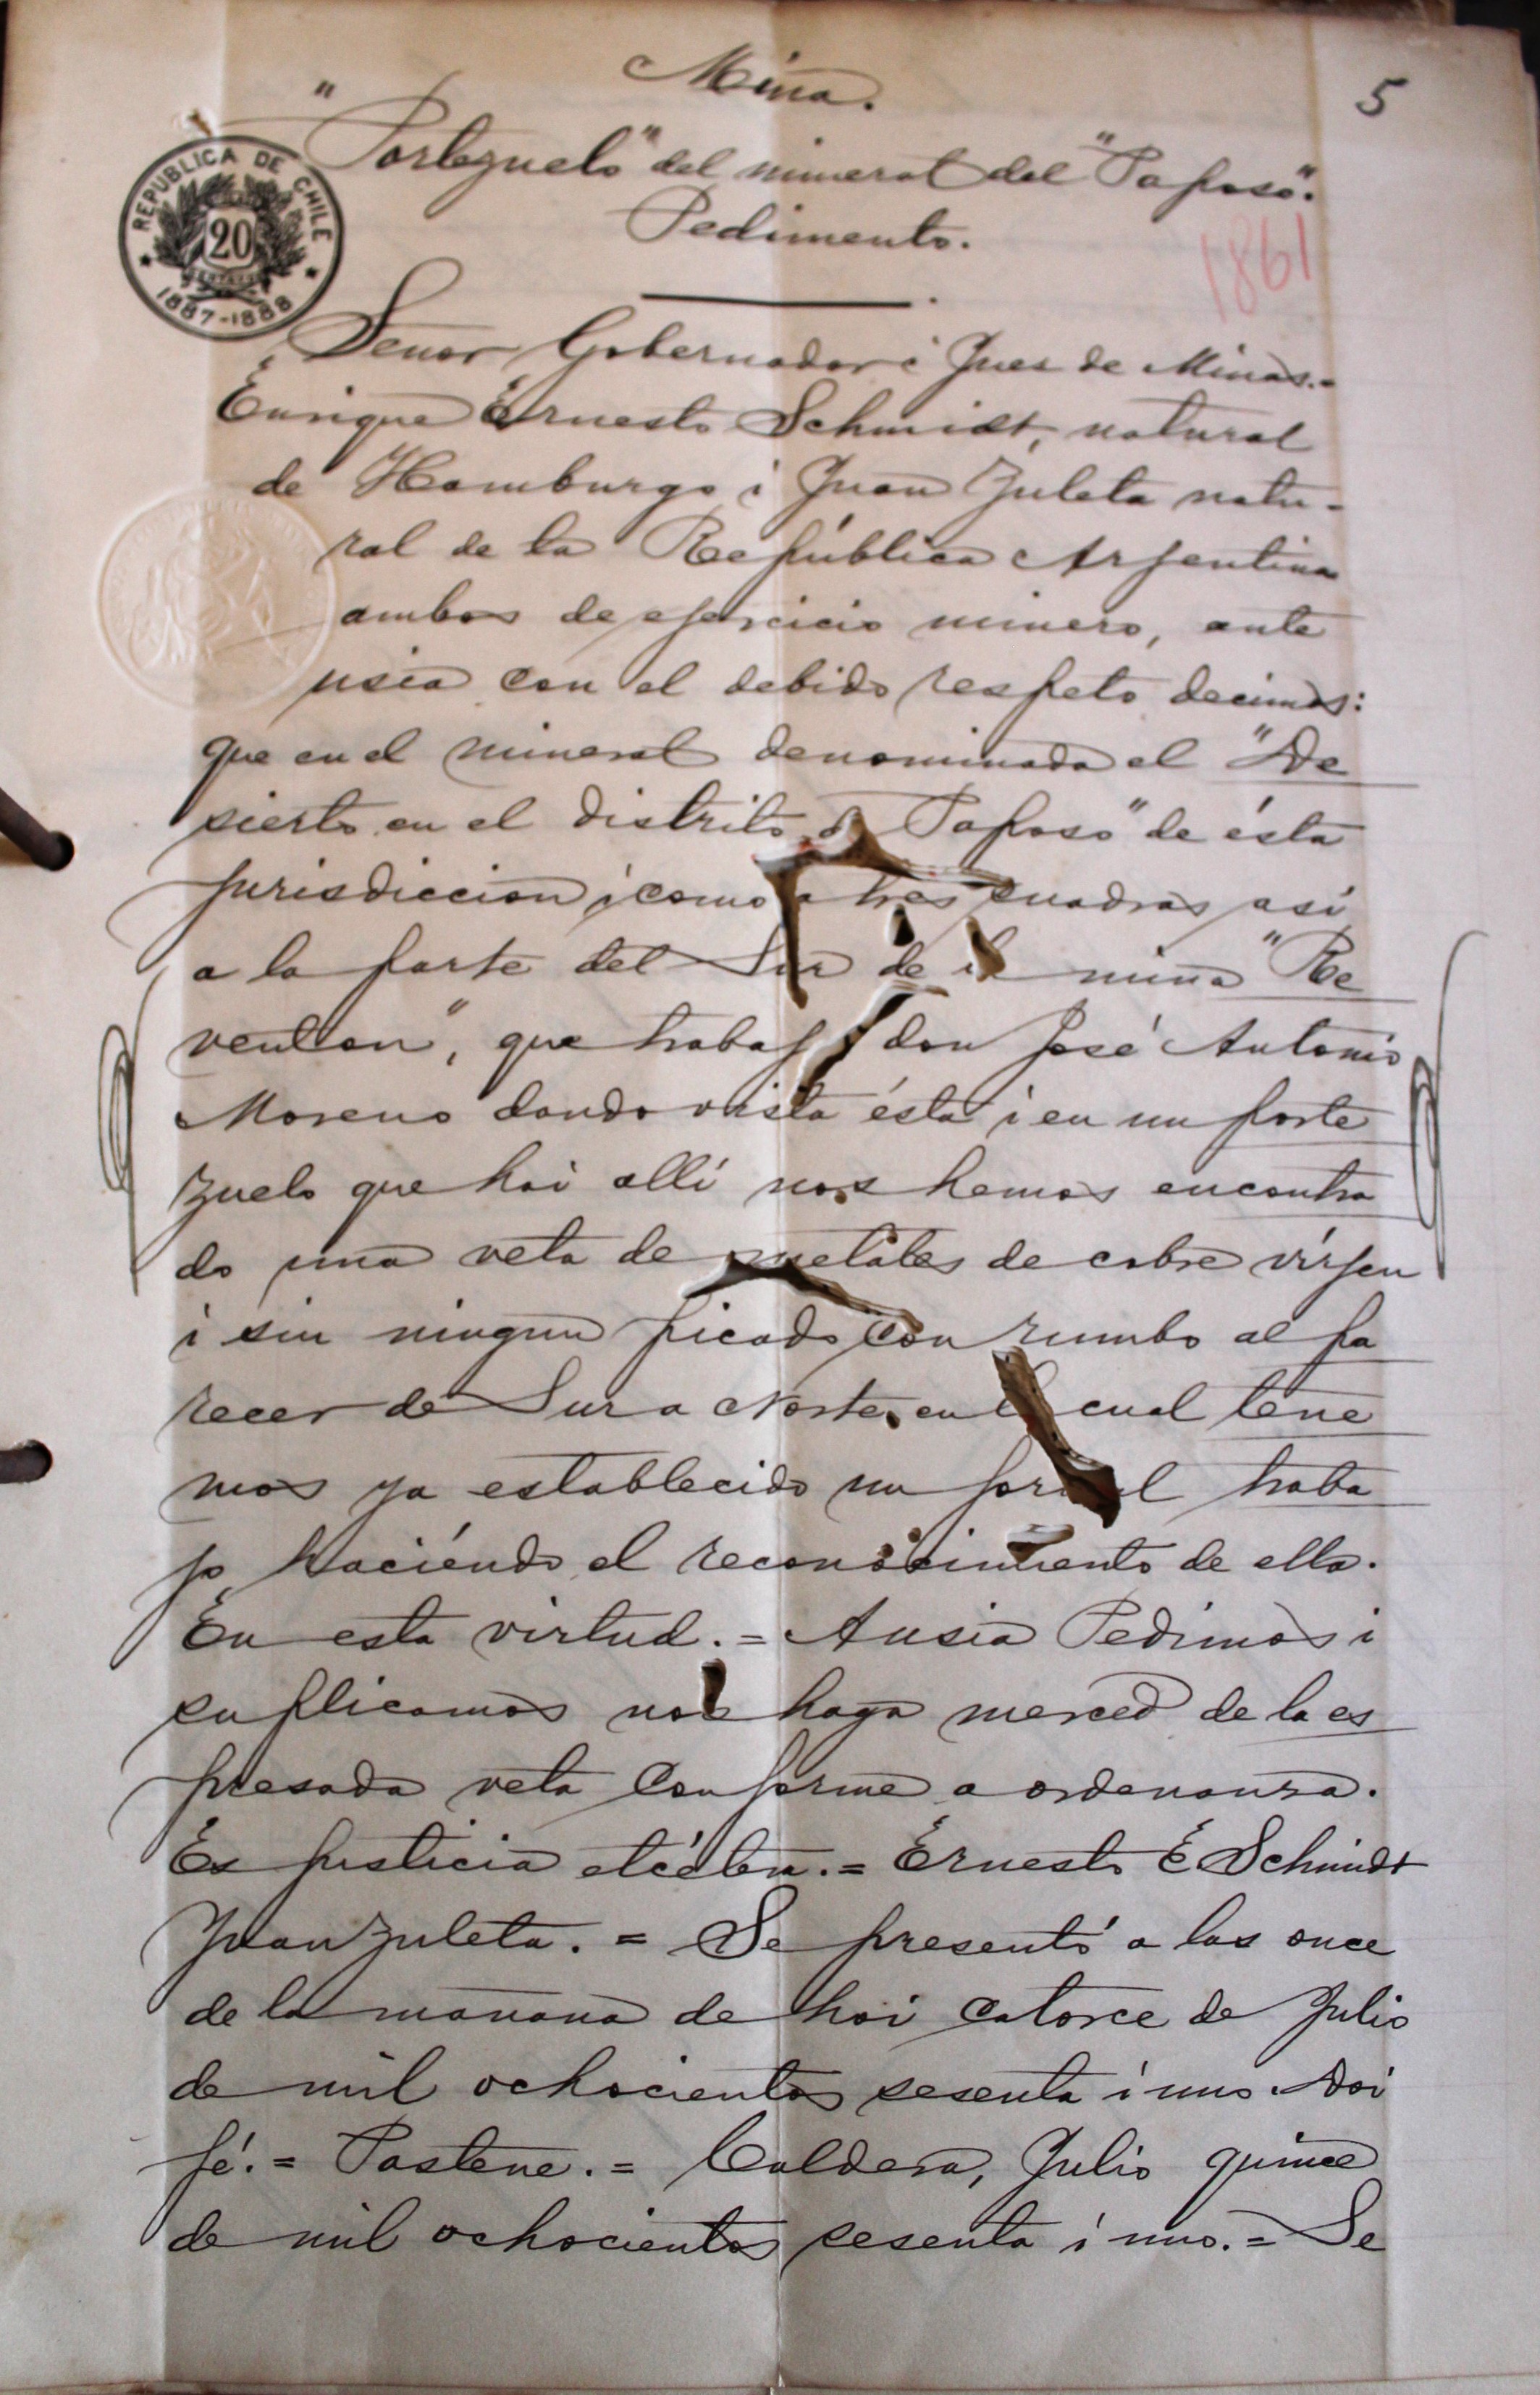 5
Mina.
"Portezuelo" del mineral del "Paposo".
Pedimento.
1861
REPUBLICA DE CHILE
20
CENTAVOS
1887-1888
Señor Gobernador i Juez de Minas.=
Enrique Ernesto Schmidt, natural
de Hamburgo i Juan Zuleta natu-
ral de la República Arjentina
ambos de ejercicio minero, ante
usia con el debido respeto decimos:
que en el mineral denominado el "De
sierto en el distrito Paposo" de ésta
jurisdiccion i como a tres cuadras asi
a la parte del Sur de mina "Re
venton", que trabaj don José Antonio
Moreno dando vista ésta i en un porte
zuelo que hai allí nos hemos encontra
do una veta de metales de cobre vírjen
i sin ningun picado con rumbo al pa
recer de Sur a Norte, en cual tene
mos ya establecido un for l traba
jo haciéndo el reconocimiento de ella.
En esta virtud.= A usia Pedimos i
suplicamos nos haga merced de la es
presada veta conforme a ordenanza.
Es justicia etcétera.= Ernesto E Schmidt
Juan Zuleta.= Se presentó a las once
de la mañana de hoi catorce de Julio
de mil ochocientos sesenta i uno. Doi
fé.= Pastene.= Caldera, Julio quince
de mil ochocientos sesenta i uno.= Se